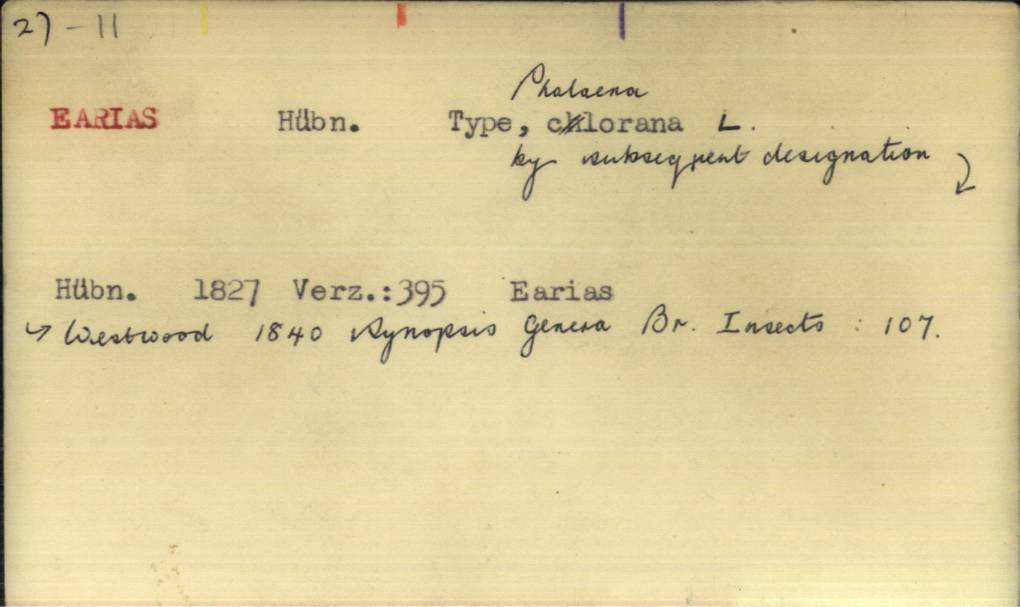 27-11
Phalaena
EARIAS Hübn. Type, chlorana L.
by subsequent designation
Hübn. 1827 Verz.:395 Earias
↪ Westwood 1840 Synopsis Genera Br. Insects : 107.